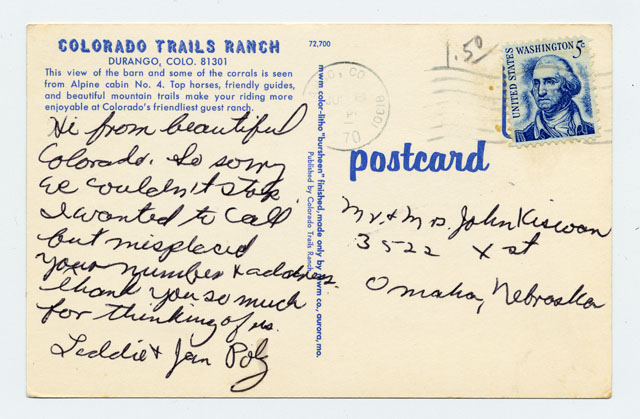 COLORADO TRAILS RANCH
DURANGO, COLO. 81301
This view of the barn and some of the corrals is seen
from Alpine cabin No. 4. Top horses, friendly guides,
and beautiful mountain trails make your riding more
enjoyable at Colorado's friendliest guest ranch.
Hi from beautiful
Colorado. So sorry
we couldn't stop.
I wanted to call
but misplaced
your number & address.
Thank you so much
for thinking of us.
Leddie & Jan Polz
72,700
mwm color-litho "bursheen" finished, made only by mwm co., aurora, mo.
Published by Colorado Trails Ranch
1.50
CO
81301
70
UNITED STATES
WASHINGTON 5c
postcard
Mr. & Mrs. John Kiswan
3522 X st
Omaha, Nebraska